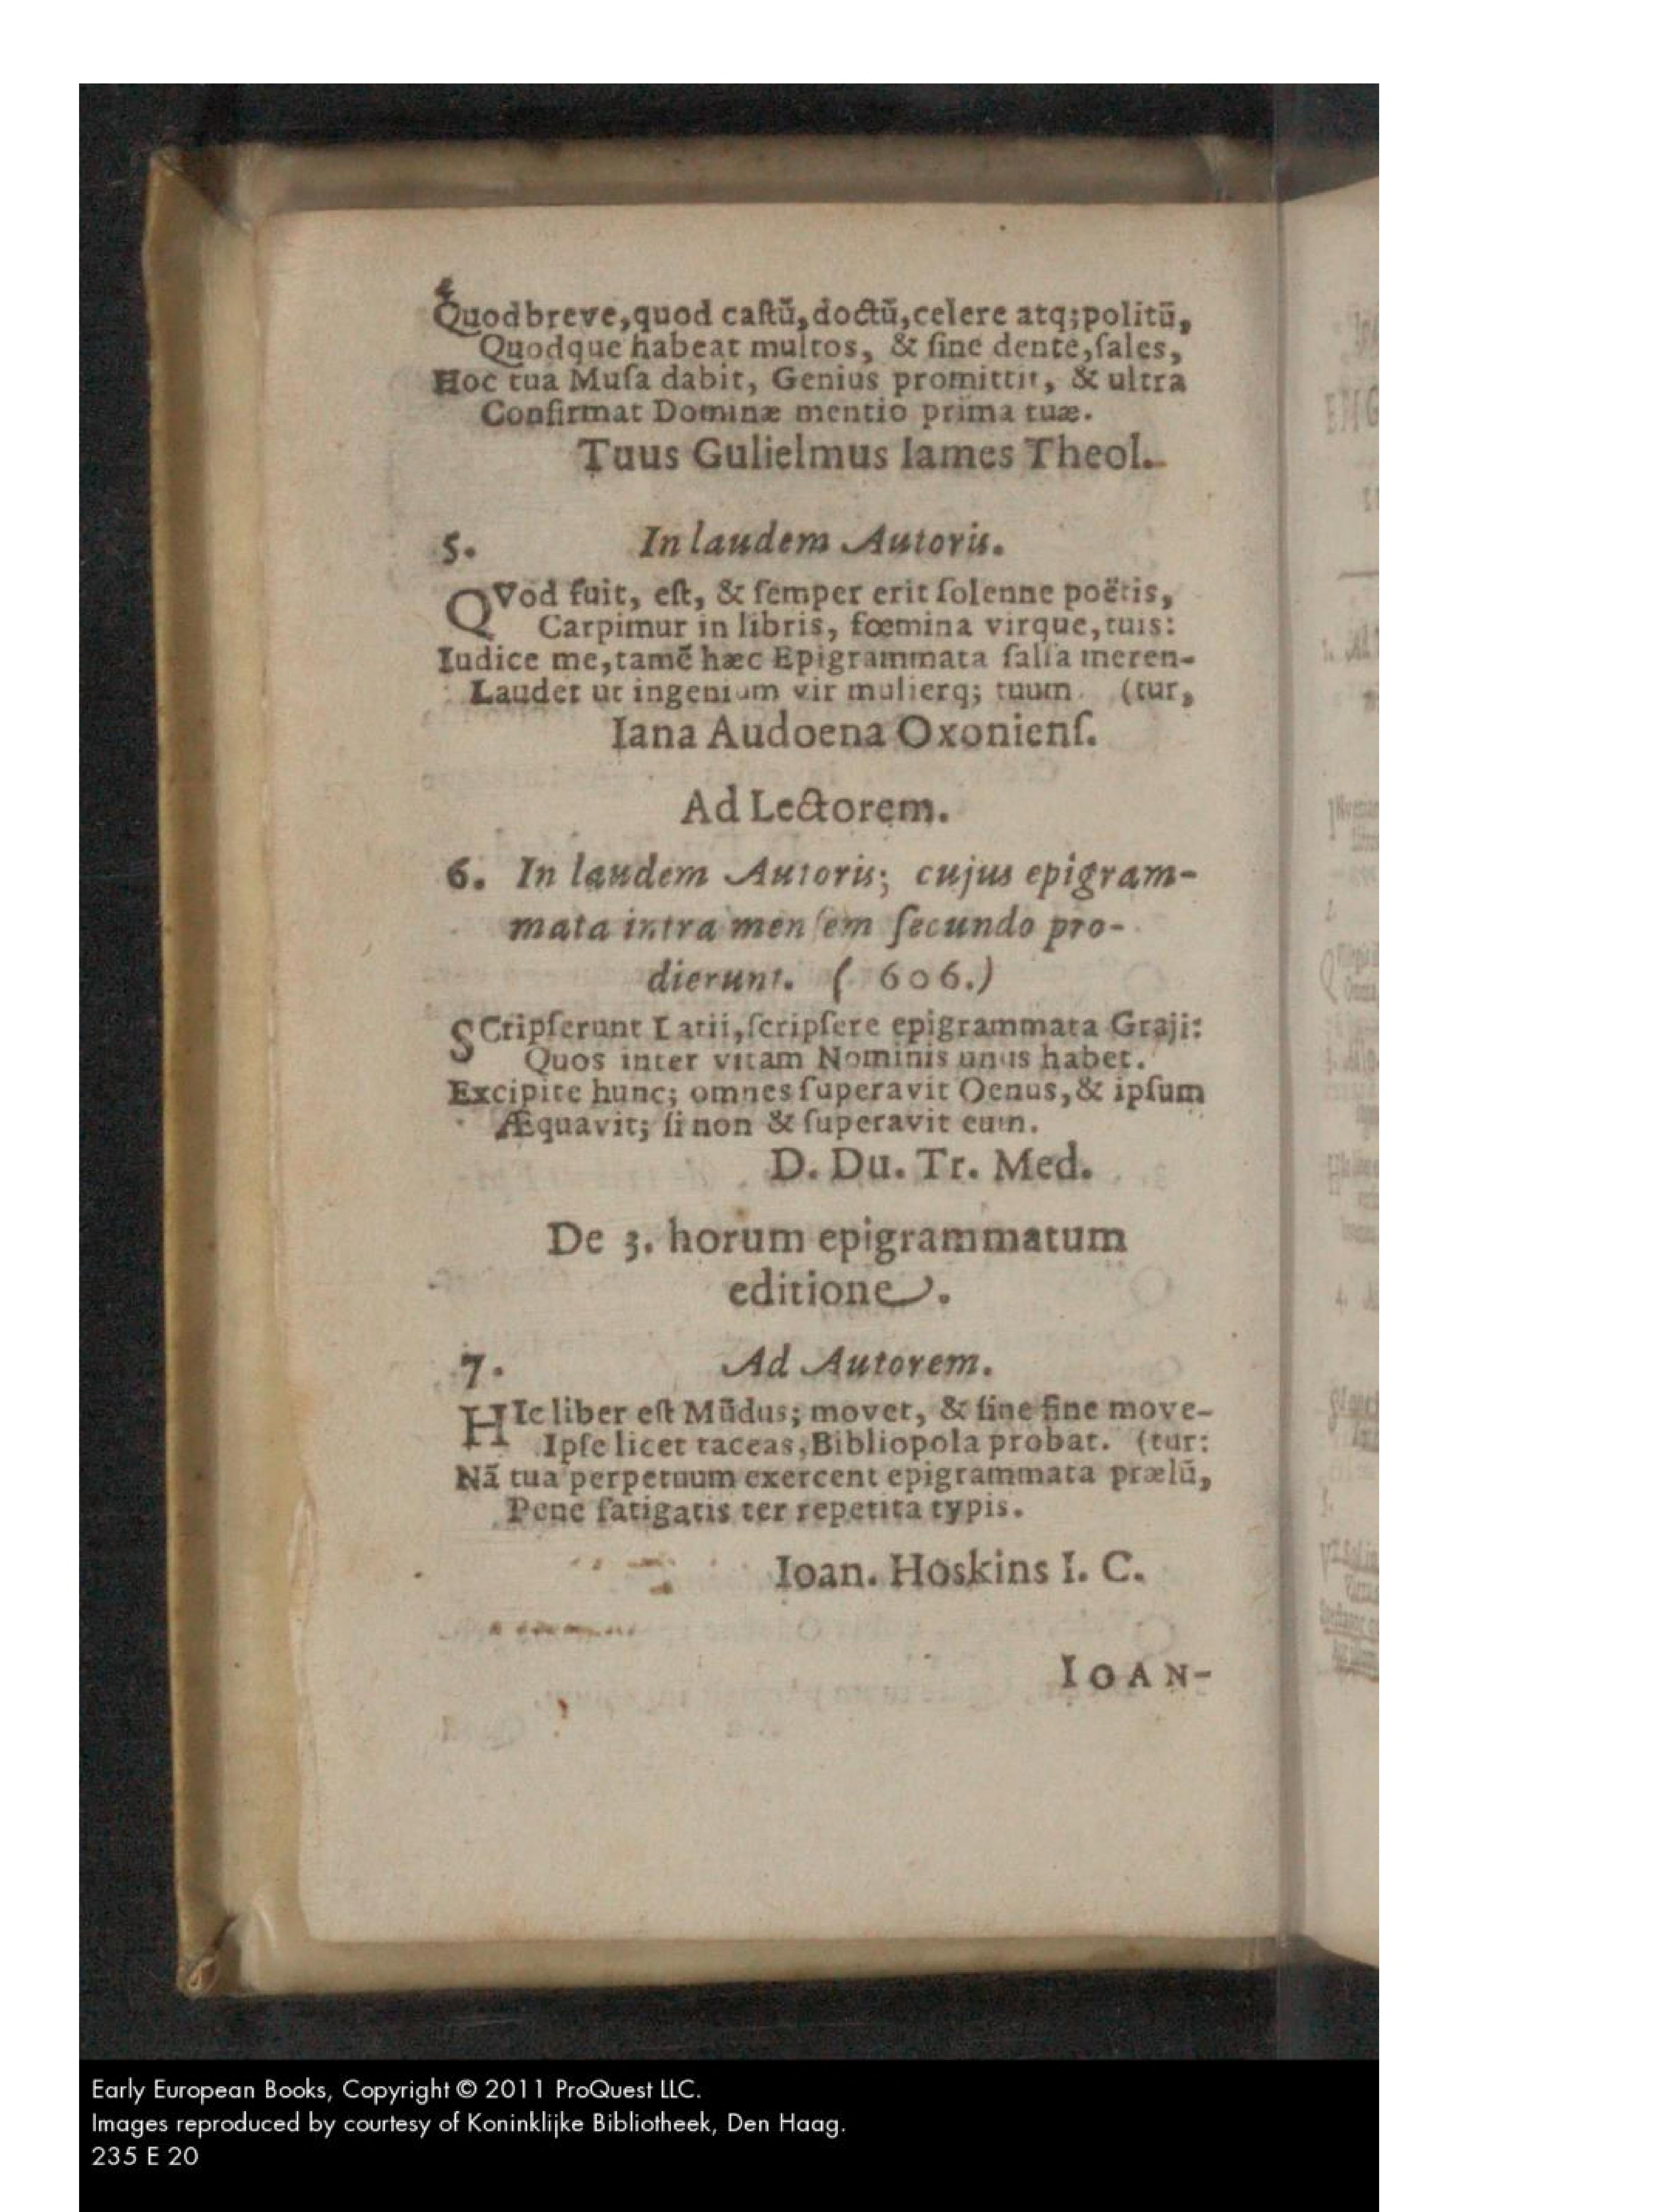 4
Quod breve, quod castū, doctū, celere atq; politū,
Quodque habeat multos, & sine dente, sales,
Hoc tua Musa dabit, Genius promittit, & ultra
Confirmat Dominæ mentio prima tuæ.
Tuus Gulielmus Iames Theol.
5. In laudem Autoris.
QVod fuit, est, & semper erit solenne poëtis,
Carpimur in libris, fœmina virque, tuis:
Iudice me, tamē hæc Epigrammata salsa meren-
Laudet ut ingenium vir mulierq; tuum. (tur,
Iana Audoena Oxoniens.
Ad Lectorem.
6. In laudem Autoris; cujus epigram-
mata intra mensem secundo pro-
dierunt. ( 606.)
SCripserunt Latii, scripsere epigrammata Graji:
Quos inter vitam Nominis unus habet.
Excipite hunc; omnes superavit Oenus, & ipsum
Æquavit; si non & superavit eum.
D. Du. Tr. Med.
De 3. horum epigrammatum
editione.
7. Ad Autorem.
HIc liber est Mūdus; movet, & sine fine move-
Ipse licet taceas, Bibliopola probat. (tur:
Nā tua perpetuum exercent epigrammata prælū,
Pene fatigatis ter repetita typis.
Ioan. Hoskins I. C.
IOAN-
Early European Books, Copyright © 2011 ProQuest LLC.
Images reproduced by courtesy of Koninklijke Bibliotheek, Den Haag.
235 E 20